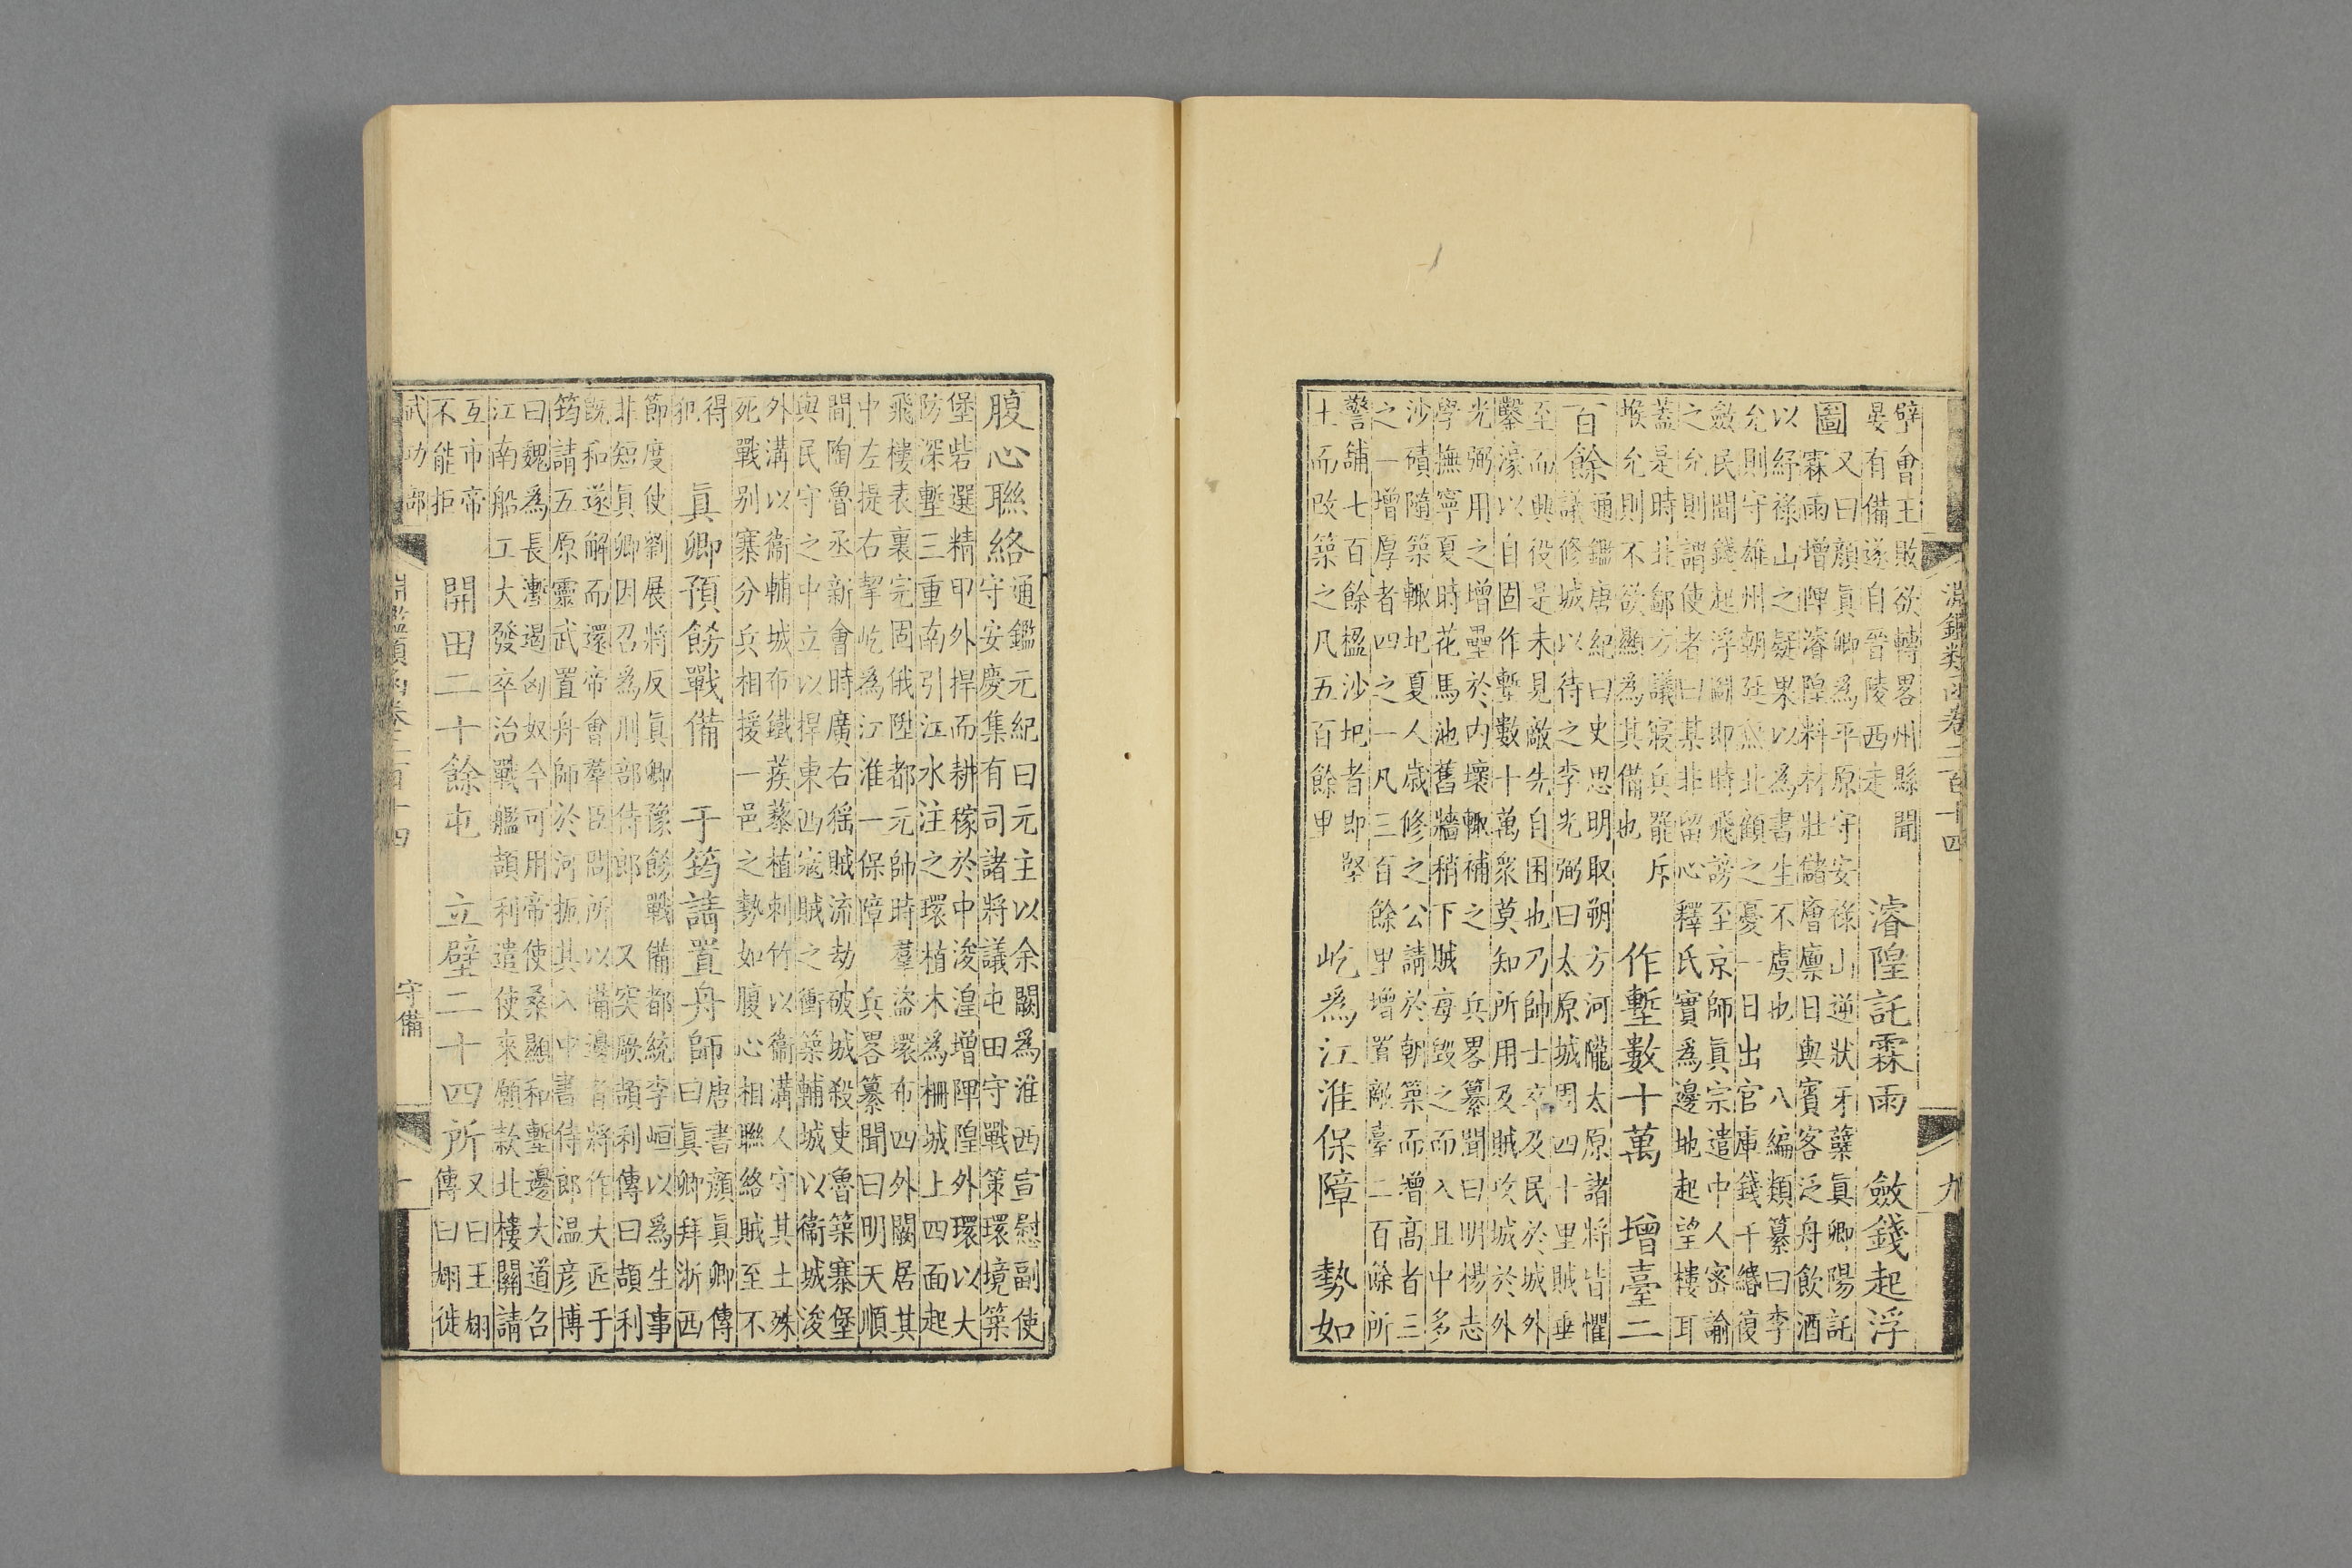 淵鑑類函卷二百十四
九
壁會王敗欲轉畧州縣聞
晏有備遂自晉陵西走
濬隍託霖雨　斂錢起浮
圖
又曰顏真卿為平原守安祿山逆狀牙蘖真卿陽託
霖雨增陴濬隍料材壯儲廥廩日與賓客泛舟飲酒
以紓祿山之疑果以為書生不虞也　八編類纂曰李
允則守雄州朝廷無北顧之憂一日出官庫錢千緡復
斂民間錢起浮圖即時飛謗至京師真宗遣中人密諭
之允則謂使者曰某非留心釋氏實為邊地起望樓耳
蓋是時北鄙方議寢兵罷斥
堠允則不欲顯為其備也
作塹數十萬　增臺二
百餘
通鑑唐紀曰史思明取朔方河隴太原諸將皆懼
議修城以待之李光弼曰太原城周四十里賊垂
至而興役是未見敵先自困也乃帥士卒及民於城外
鑿濠以自固作塹數十萬衆莫知所用及賊攻城於外
光弼用之增壘於内壞輒補之　兵畧纂聞曰明楊志
學撫寧夏時花馬池舊牆稍下賊每毀之而入且中多
沙磧隨築輒圯夏人歲修之公請於朝築而增高者三
之一增厚者四之一凡三百餘里增置敵臺二百餘所
警鋪七百餘楹沙圯者即堅
土而改築之凡五百餘里
屹為江淮保障　勢如
腹心聯絡
通鑑元紀曰元主以余闕為淮西宣慰副使
守安慶集有司諸將議屯田守戰策環境築
堡砦選精甲外捍而耕稼於中浚湟增陴隍外環以大
防深塹三重南引江水注之環植木為柵城上四面起
飛樓表裏完固俄陞都元帥時羣盜環布四外闕居其
中左提右挈屹為江淮一保障　兵畧纂聞曰明天順
間陶魯丞新會時廣右猺賊流劫破城殺吏魯築寨堡
與民守之中立以捍東西寇賊之衝築輔城以衞城浚
外溝以衞輔城布鐵蒺藜植刺竹以衞溝人守其土殊
死戰别寨分兵相援一邑之勢如腹心相聯絡賊至不
得
犯
真卿預餝戰備　于筠請置舟師
唐書顏真卿傳
曰真卿拜浙西
節度使劉展將反真卿豫餝戰備都統李峘以為生事
非短真卿因召為刑部侍郎　又突厥頡利傳曰頡利
既和遂解而還帝會羣臣問所以備邊者將作大匠于
筠請五原靈武置舟師於河扼其入中書侍郎温彦博
曰魏為長塹遏匈奴今可用帝使桑顯和塹邊大道召
江南船工大發卒治戰艦頡利遣使來願款北樓關請
互市帝
不能拒
開田二十餘屯　立壁二十四所
又曰王翃
傳曰翃徙
武功部
淵鑑類函卷二百十四
守備
十